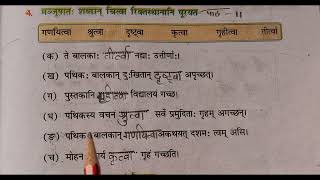 4. मञ्जूषातः शब्दान् चित्वा रिक्तस्थानानि पूरयत
गणयित्वा श्रुत्वा दृष्ट्वा कृत्वा गृहीत्वा तीर्त्वा
(क) ते बालकाः तीर्त्वा नद्याः उत्तीर्णाः।
(ख) पथिकः बालकान् दुःखितान् दृष्ट्वा अपृच्छत्।
(ग) पुस्तकानि विद्यालयं गच्छ।
(घ) पथिकस्य वचनं श्रुत्वा सर्वे प्रमुदिताः गृहम् अगच्छन्।
(ङ) पथिकः बालकान् गणयित्वा अकथयत् दशमः त्वम् असि।
(च) मोहनः कार्यं कृत्वा गृहं गच्छति।